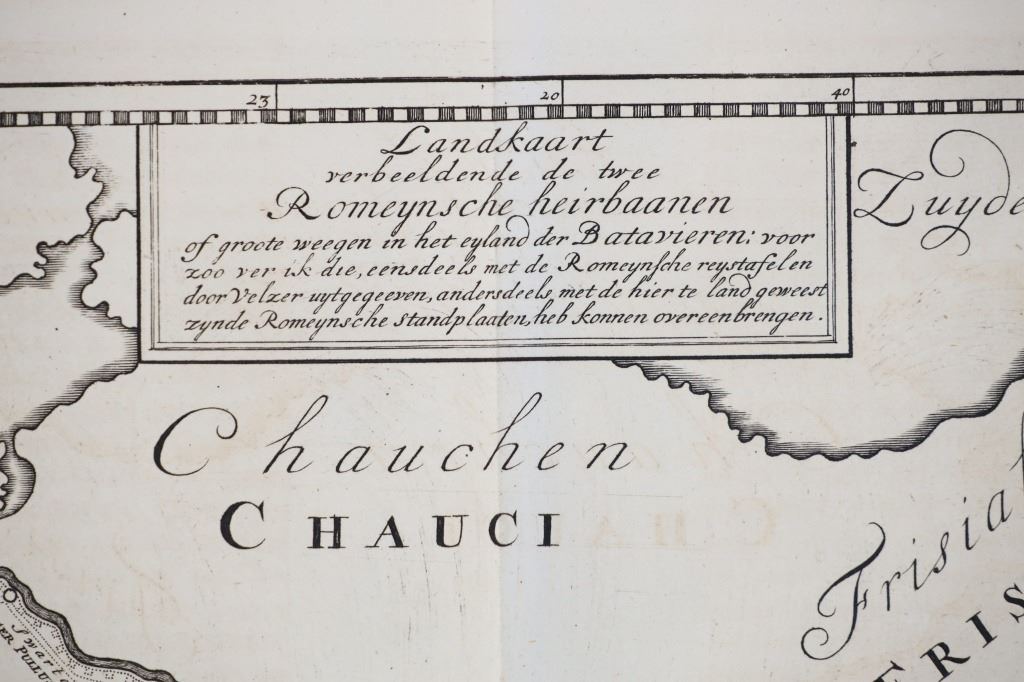 23
20
40
Landkaart
verbeeldende de twee
Romeynsche heirbaanen
of groote weegen in het eyland der Batavieren: voor
zoo ver ik die, eensdeels met de Romeynsche reystafelen
door Velzer uytgegeeven, andersdeels met de hier te land geweest
zynde Romeynsche Standplaaten, heb konnen overeenbrengen.
Zuyde
Chauchen
CHAUCI
Frisia
FRIS
Swart